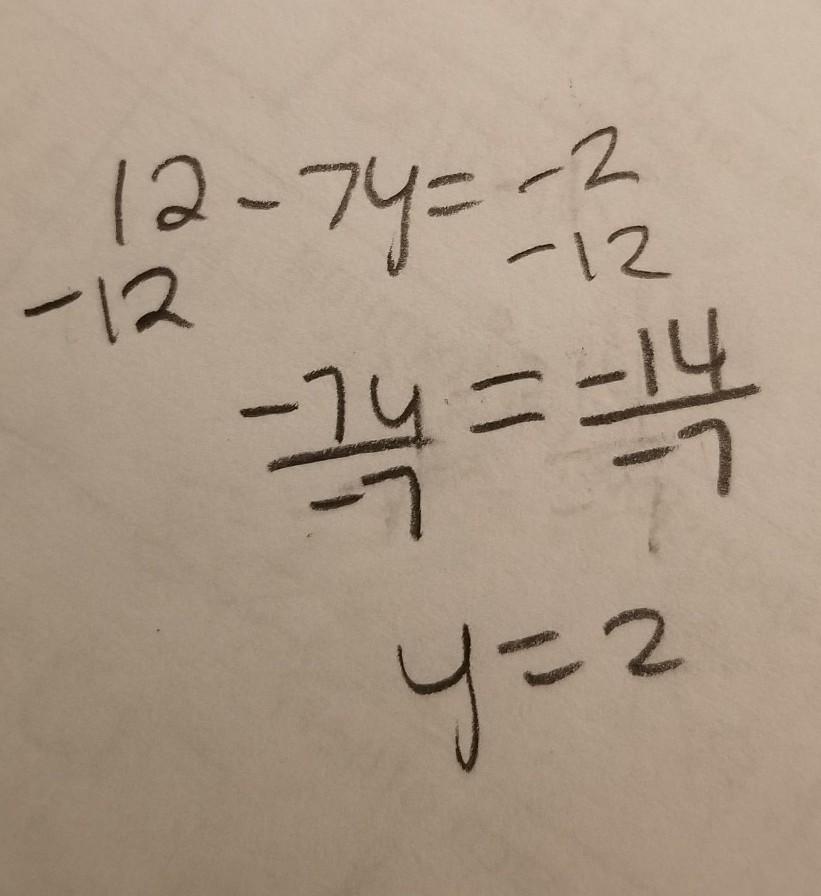 12 - 7y = -2
-12 -12
-7y = -14
-7 -7
y = 2